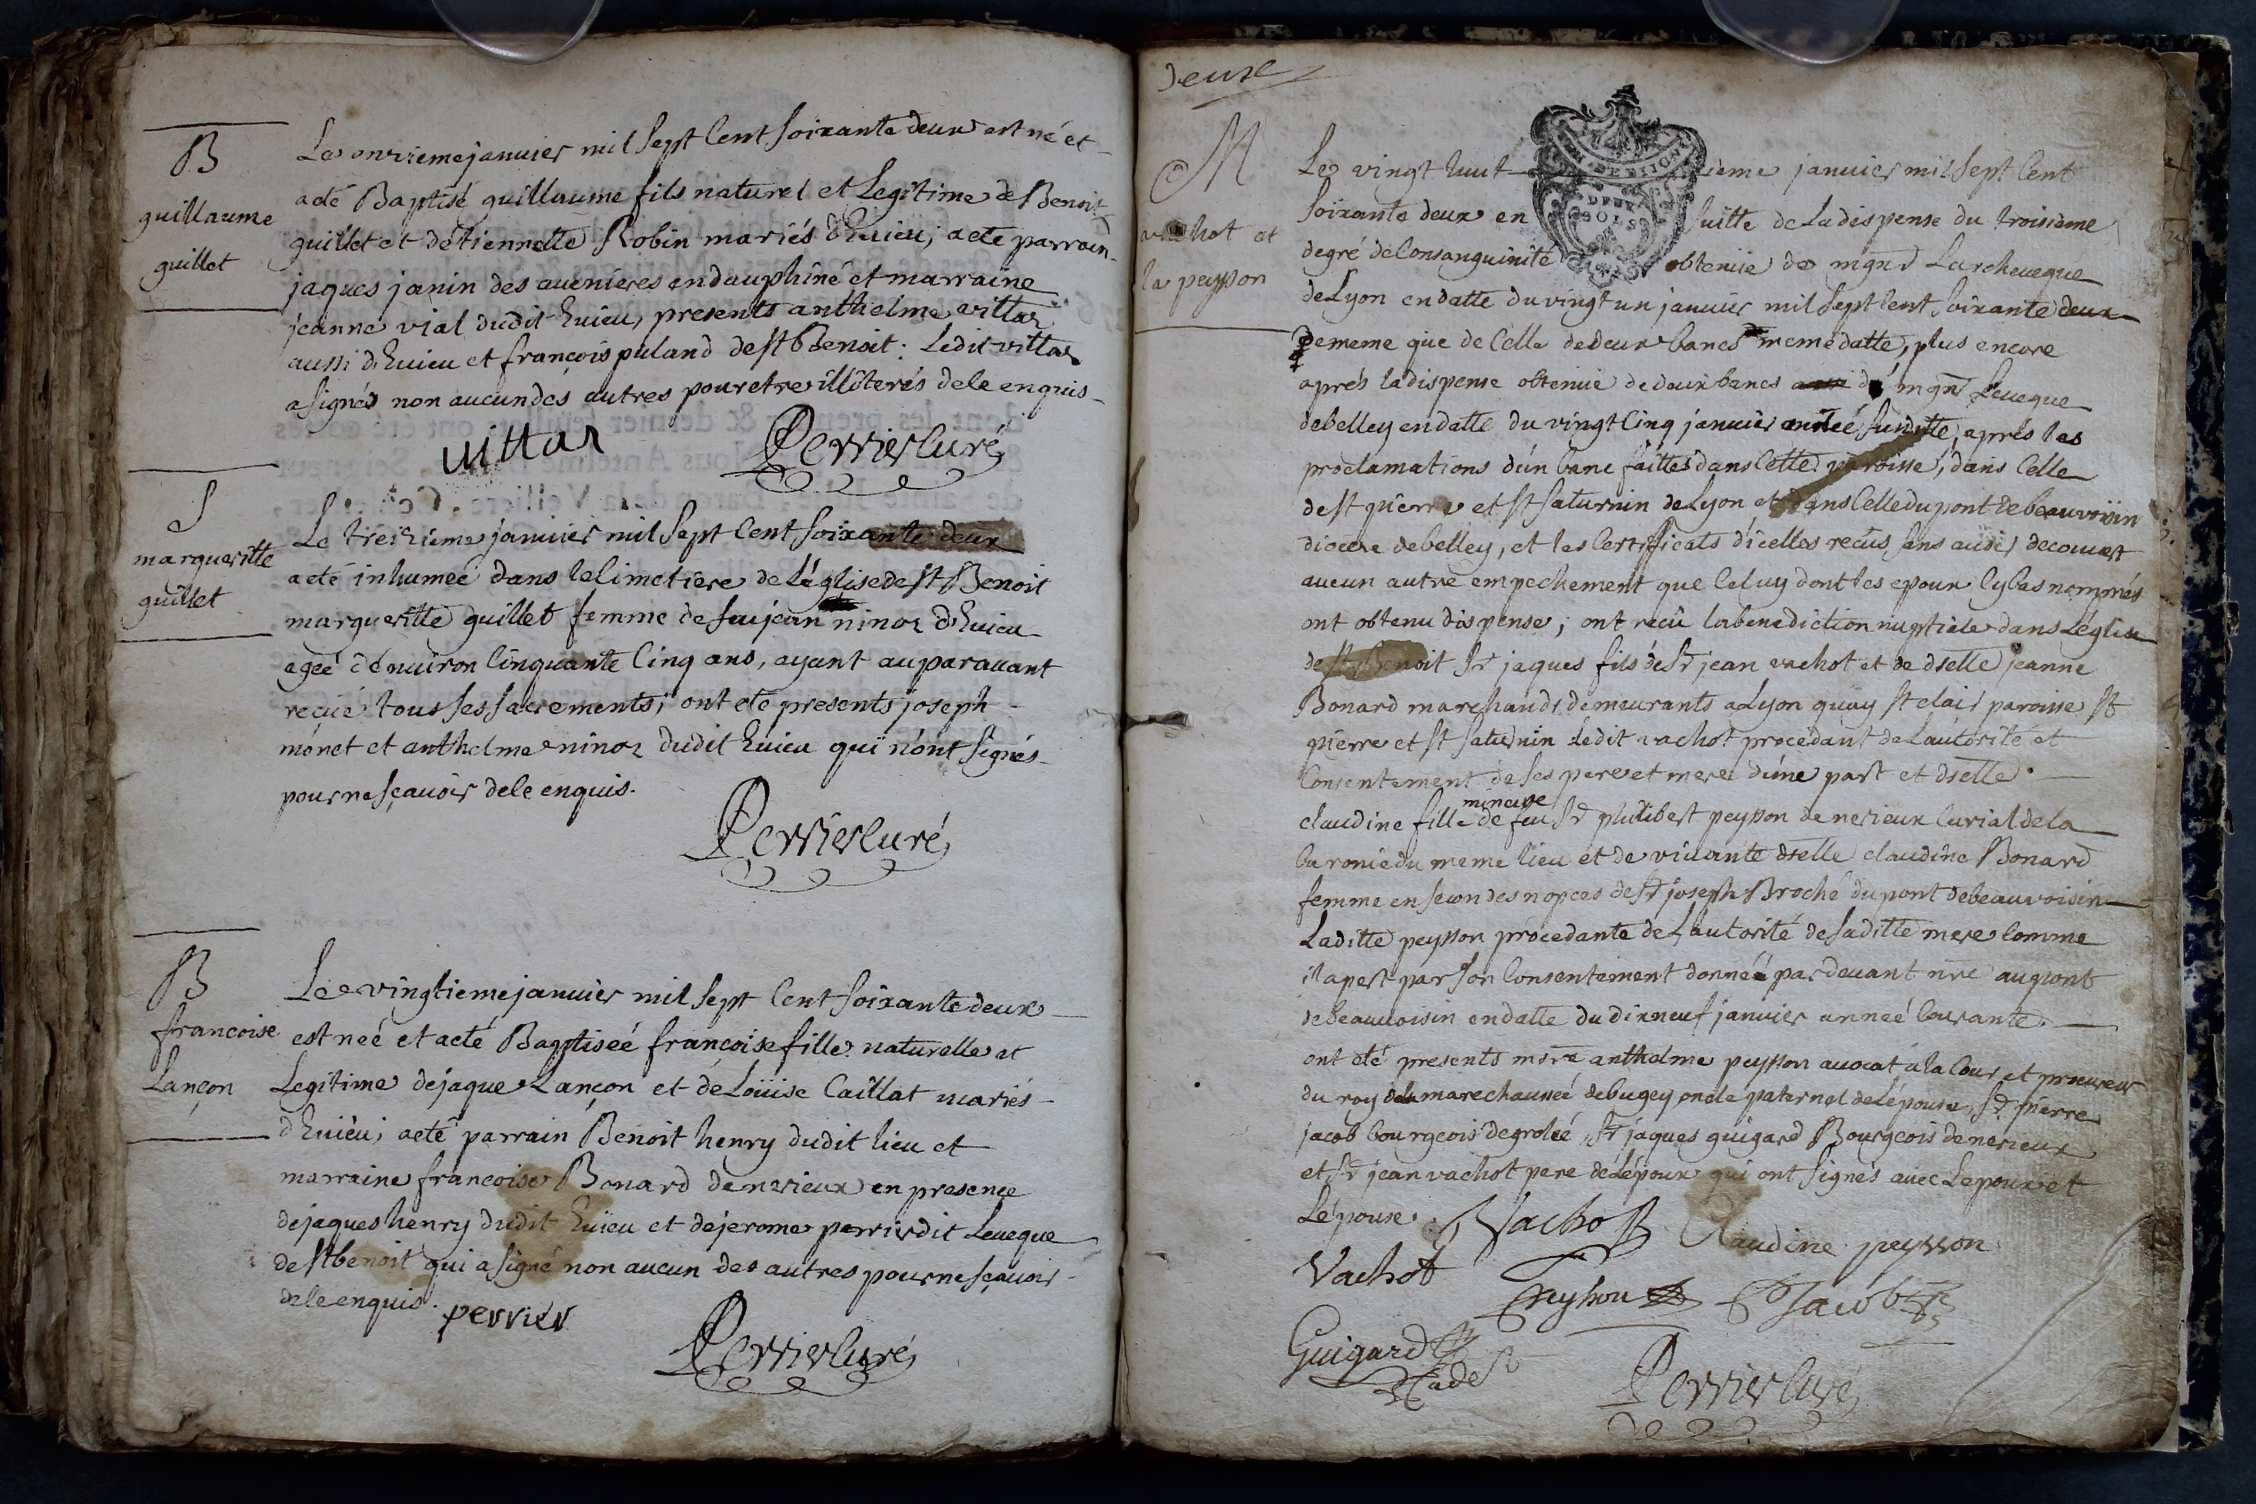 B
guillaume
guillet
Le onzieme janvier mil sept Cent soixante deux est né et
a eté Baptisé guillaume fils naturel et Legitime de Benoit
guillet et détiennette Robin mariés d'Euieu, a eté parrain
jaques janin des avenieres en dauphiné et marraine
jeanne vial dudit Euieu, presents anthelme vittoz
aussi d'Euieu et francois puland de st Benoit. Ledit vittoz
a signés non aucun des autres pour etre illiterés de le enquis
vittoz Perrier Curé
S
margueritte
guillet
Le treizieme janvier mil sept Cent soixante deux
a eté inhumeé dans le Cimetiere de L'église de st Benoit
margueritte guillet femme de feu jean ninoz d'Euieu
ageé d'environ Cinquante Cinq ans, ayant auparauant
reçüé tous ses sacrements, ont eté presents joseph
monet et anthelme ninoz dudit Euieu qui n'ont signés
pour ne sçauoir de le enquis.
Perrier Curé
B
francoise
Lançon
Le vingtieme janvier mil sept Cent soixante deux
est neé et a eté Baptiseé francoise fille naturelle et
Legitime de jaque Lançon et de Loüise Caillat mariés
d'Euieu, a eté parrain Benoit henry dudit lieu et
marraine francoise Bonard de nerieux en presence
de jaques henry dudit Euieu et de jerome perrier dit Leueque
de st benoit qui a signé non aucun des autres pour ne sçauoir
de le enquis.
perrier
Perrier Curé
deuze
M
vachot et
la peysson
Le vingt huit ieme janvier mil sept Cent
soixante deux en suitte de La dispense du troisieme
degré de Consanguinité obtenüe de mgnr Larcheueque
de Lyon en datte du vingt un janvier mil sept Cent soixante deux
de meme que de Celle de deux bancs meme datte, plus encore
aprés la dispense obtenüe de deux bancs de mgnr Leueque
de belley en datte du vingt Cinq janvier année susditte, apres les
proclamations d'ün banc faittes dans Cette paroisse, dans Celle
de st pierre et st saturnin de Lyon et dans Celle du pont de beauvoisin
diocese de belley, et les Certificats d'icelles recus sans auoir decouuert
aucun autre empechement que Celuy dont les epoux Cy bas nommés
ont obtenu dispense, ont recü la benediction nuptiale dans L'église
de st benoit sr jaques fils de sr jean vachot et de dselle jeanne
Bonard marchands demeurants a Lyon quay st clair paroisse st
pierre et st saturnin ledit vachot procedant de L'autorité et
Consentement de ses pere et mere d'üne part et dselle
claudine fille mineure de feu sr philibert peysson de nerieux Curial de la
baronie du meme lieu et de viuante dselle claudine Bonard
femme en secondes nopces de sr joseph Broché du pont de beauvoisin
Laditte peysson procedante de L'autorité de saditte mere Comme
il apert par son Consentement donné pardeuant nre au pont
de beauuoisin en datte du dixneuf janvier anneé Courante.
ont eté presents msre anthelme peysson auocat a la Cour et procureur
du roy de la marechausseé de bugey oncle paternel de Lépouse, sr pierre
jacob bourgeois de groleé, sr jaques guigard Bourgeois de nerieux
et sr jean vachot pere de Lépoux qui ont signés auec Lepoux et
Lépouse.
Vachot Claudine peysson
Vachot
Peysson Jacob
Guigard
Perrier Curé